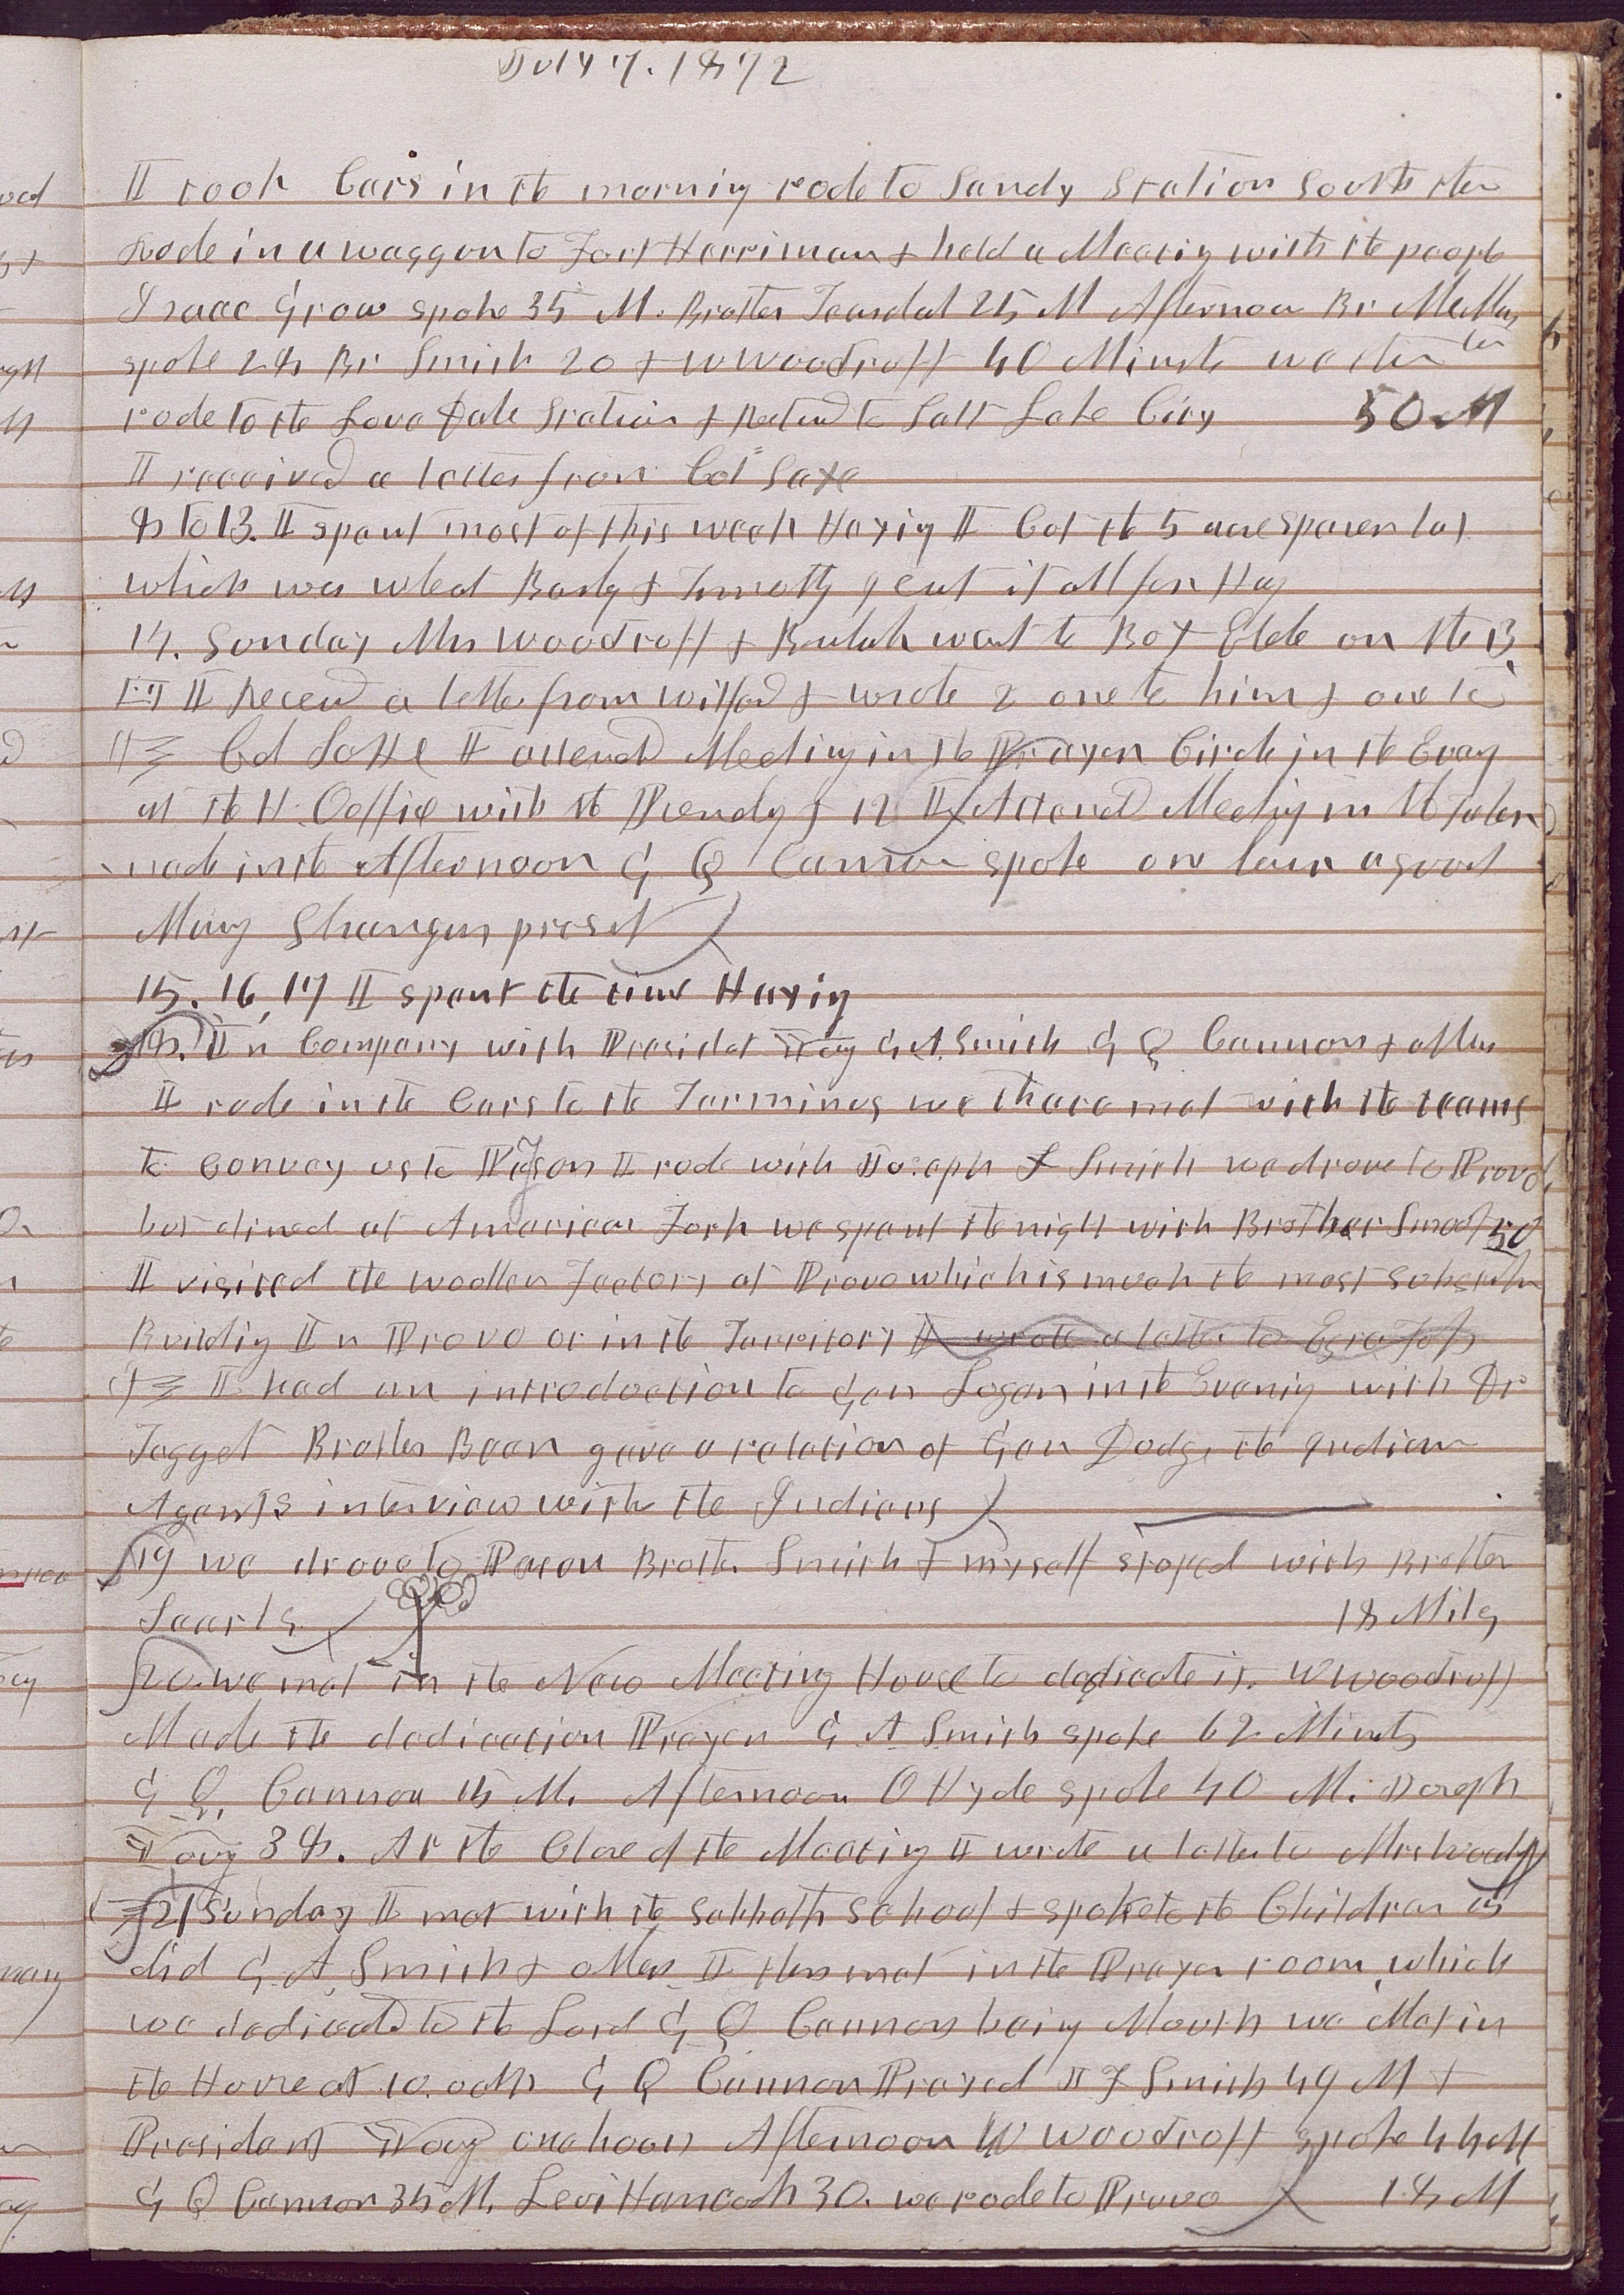 July 7. 1872
I took Cars in the morning rode to Sandy Station South then
Rode in a waggon to Fort Herriman & held a Meeting with the people
Isaac Grow spoke 35 M. Brother Teasdal 25 M Afternoon Br
spoke 28 Br Smith 20 & W Woodruff 40 Minuts we then
rode to the Lovedale Station & Returnd to Salt Lake City 50 M
I received a letter from Col Saxe
8 to 13. I spent most of this week Haying I Cut the 5 acre lot
which was wheat Barly & Timothy I cut it all for Hay
14. Sunday Mrs Woodruff & Bulah went to Box Elde on the 13
I Receivd a letter from Wilford & wrote 2 one to him & one to
Col Saxe I attend Meeting in the Prayer Circle in the Eveng
at the H. Office with the Presdy & 12 I Attend Meeting in the Taber
nacle in the Afternoon G Q Cannon spoke one hour a good
Many Strangers preset
15. 16, 17 I spent the time Haying
18. In Company with Presidet Young G. A. Smith G Q Cannon & others
I rode in the Cars to the Terminus we thare met with the teams
to Convey us to Payson I rode with Joseph F Smith we drove to Provo
but dined at American Fork we spent the night with Brother Smoot 50
I visited the woollen Factory at Provo which is much the most
Building In Provo or in the Territory I wrote a letter to Ezra Foss
I had an introduction to Gen Logan in the Evening with Dr
Tagget Brother Bean gave a relation of Gen Dodge the Indian
Agents interview with the Indians
19 we drove to Payson Brother Smith & myself stoped with Brother
18 Miles
20. we met in the New Meeting House to dedicate it. W Woodruff
Made the dedication Prayer G A Smith spoke 62 Minuts
G Q. Cannon 15 M. Afternoon O Hyde spoke 40 M. Joseph
Young 38. At the Close of the Meeting I wrote a letter to Mrs Woodruff
21 Sunday I met with the Sabbath School & spoke to the Children as
did G. A. Smith & others I then met in the Prayer room which
we dedicated to the Lord G Q Cannon being Mouth we Met in
the House at 10. oclk G Q Cannon Prayed J F Smith 49 M &
President Young one hour Afternoon W Woodruff spoke 44 M
G Q Cannon 35 M. Levi Hancock 30. we rode to Provo 18 M